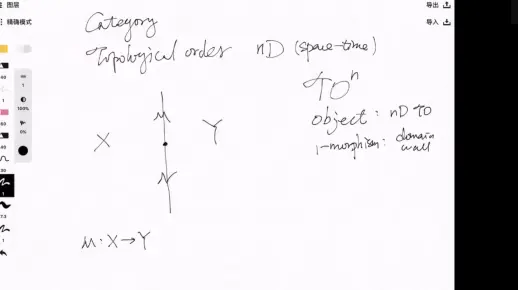 图层
导出
精确模式
导入
Category
Topological order nD (space-time)
TOⁿ
object : nD TO
1-morphism: domain wall
X
M
Y
M
M : X → Y
100%
0%